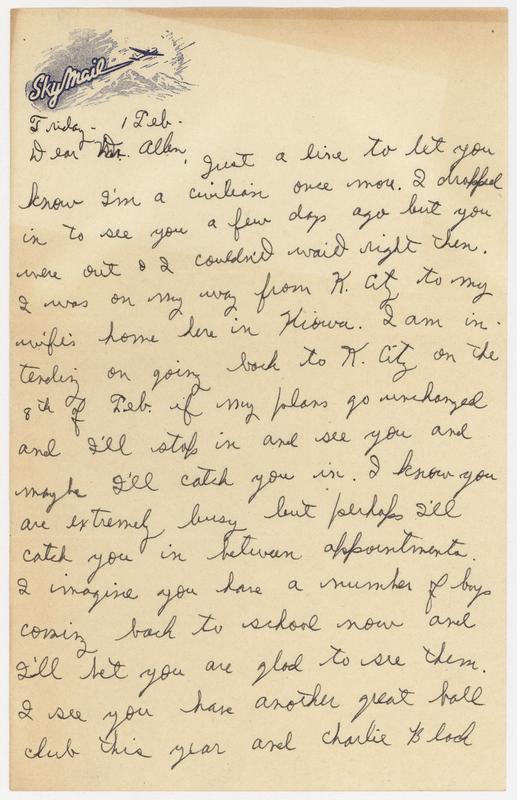 Sky Mail
Friday - 1 Feb.
Dear Dr. Allen,
Just a line to let you
know I'm a civilian once more. I dropped
in to see you a few days ago but you
were out & I couldn't wait right then.
I was on my way from K. City to my
wife's home here in Kiowa. I am in-
tending on going back to K. City on the
8th of Feb. if my plans go unchanged
and I'll stop in and see you and
maybe I'll catch you in. I know you
are extremely busy but perhaps I'll
catch you in between appointments.
I imagine you have a number of boys
coming back to school now and
I'll bet you are glad to see them.
I see you have another great ball
club this year and Charlie Black